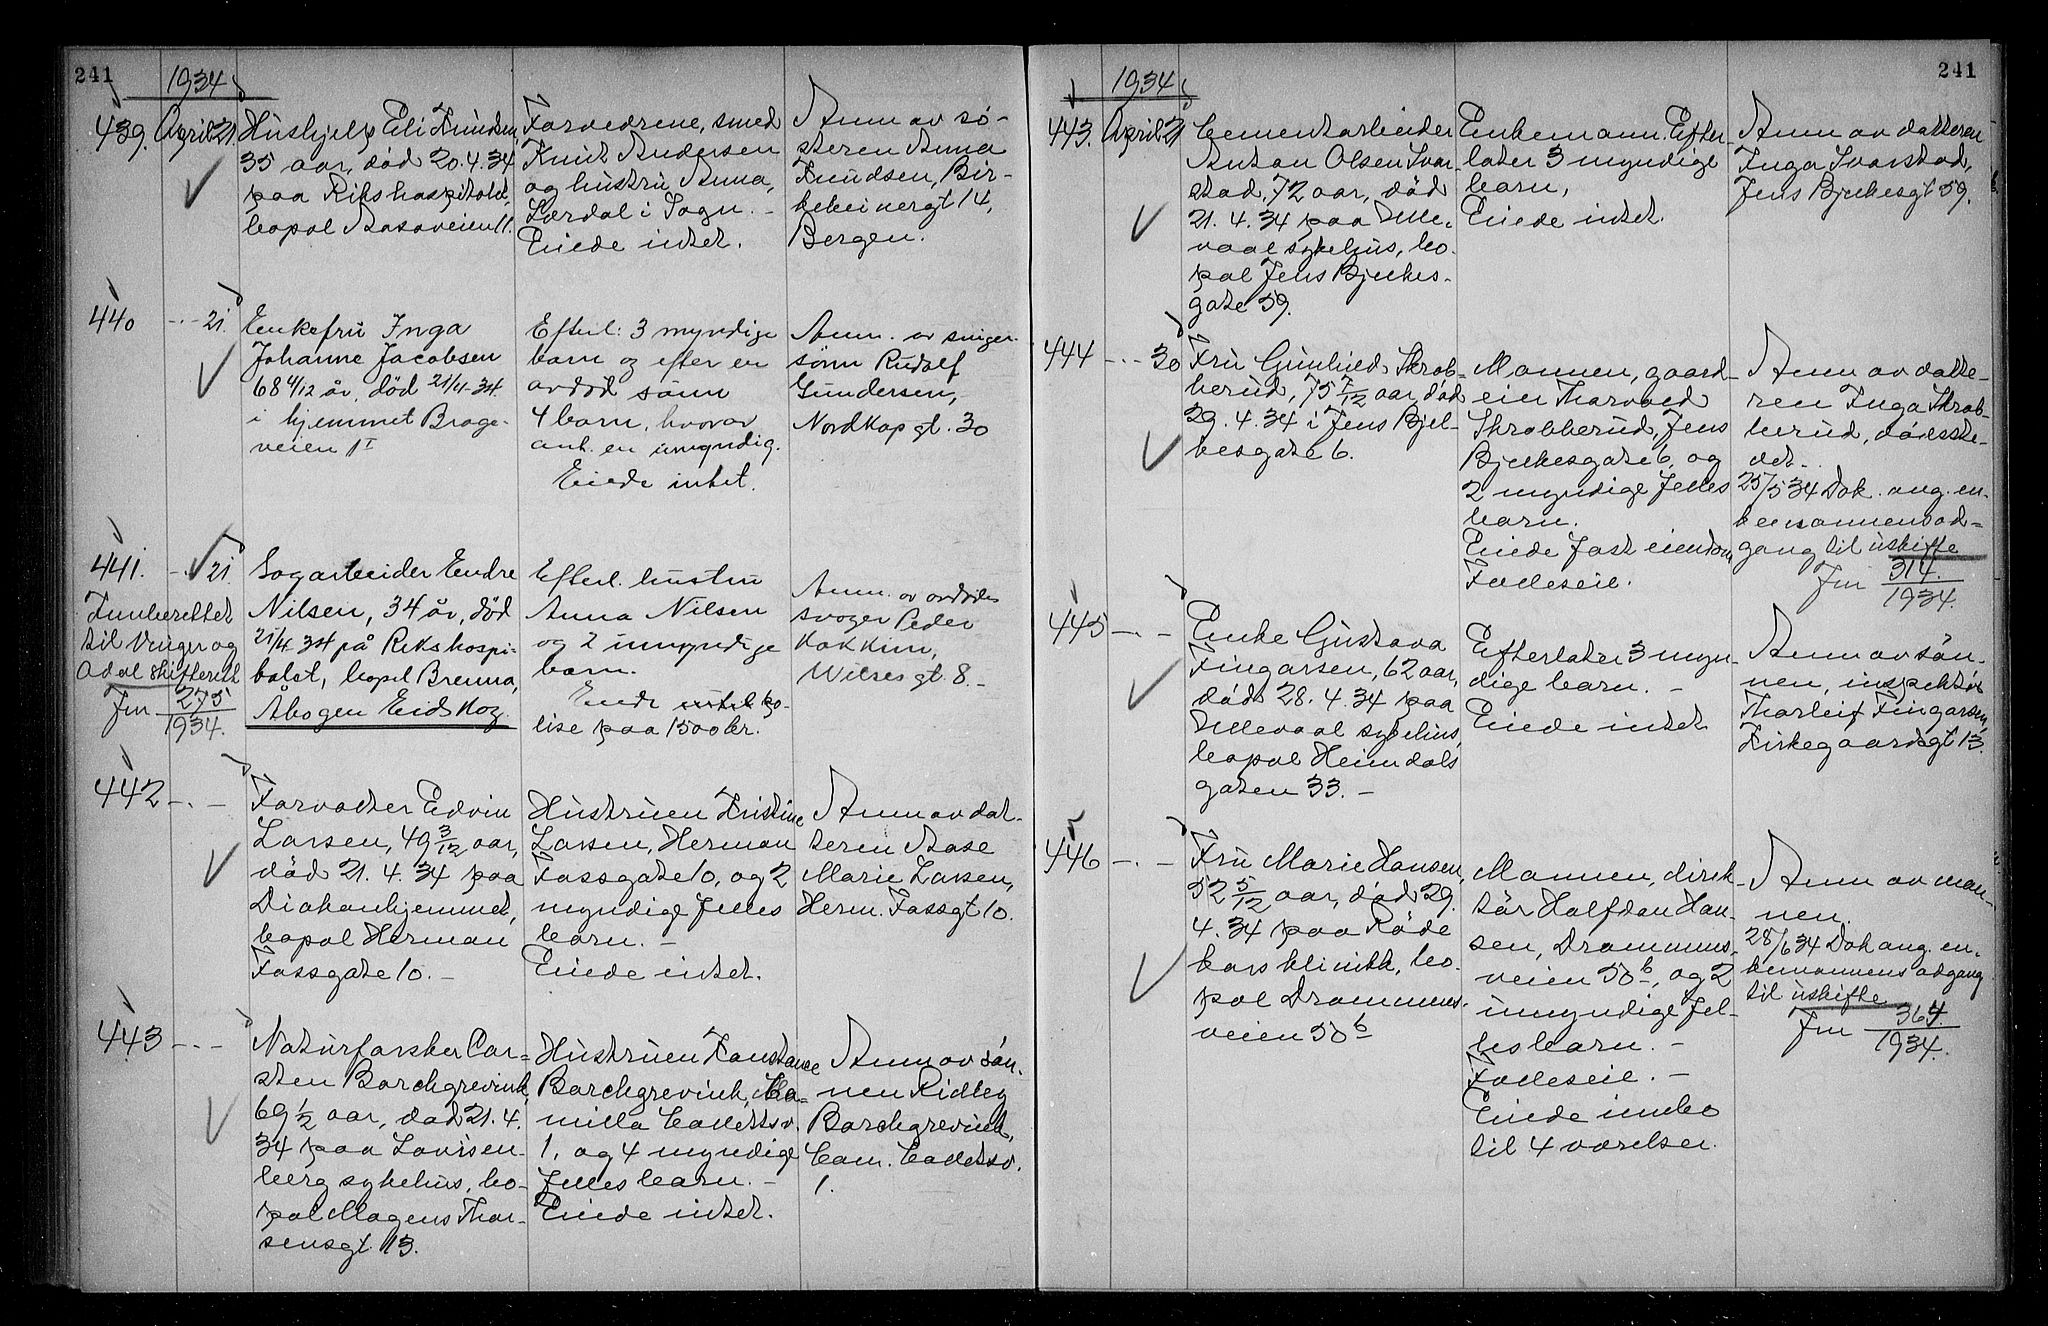 241
1934
439. April 21. Hushjelp Eli Knudsen,
35 aar, död 20.4.34
paa Rikshospitalet,
bopal Aasaveien 11.
Forældrene, smed
Knut Andersen
og hustru Anna,
Lærdal i Sogn. -
Eiede intet.
Anm av sö-
steren Anna
Knudsen, Bir-
kebeinergt 14,
Bergen.
440 -..- 21. Enkefru Inga
Johanne Jacobsen
68 4/12 år, död 21/4-34.
i hjemmet Brage-
veien 1 I
Efterl: 3 myndige
barn og efter en
avdöd sönn
4 barn, hvorav
ant. en umyndig.
Eiede intet.
Anm. av sviger-
sönn Rudolf
Gundersen,
Nordkapgt. 30
441. -..- 21. Sagarbeider Endre
Nilsen, 34 år, död
21/4 34 på Rikshospi-
talet, bopel Brenna,
Åbogen Eidskog.
Innberettet
til Vinger og
Odal skifterett
Jm 275/1934.
Efterl. hustru
Anna Nilsen
og 2 umyndige
barn.
Eiede intet po-
lise paa 1500 kr.
Anm. av avdödes
svoger Peder
Wilsesgt. 8. -
442 -..- Forvalter Edvin
Larsen, 49 3/12 aar,
död 21.4.34 paa
Diakonhjemmet,
bopal Herman
Fossgate 10. -
Hustruen Kristine
Larsen, Herman
Fossgate 10, og 2
myndige felles
barn. -
Eiede intet.
Anm av dat-
teren Aase
Marie Larsen,
Herm. Fossgt 10.
443 -..- Naturforsker Car-
sten Borchgrevink,
69 1/2 aar, död 21.4.
34 paa Lovisen-
berg sykehus, bo-
pal Mogens Thor-
sensgt. 13.
Hustruen Konstance
Borchgrevink, Ca-
milla Colletts v.
1, og 4 myndige
felles barn. -
Eiede intet.
Anm av sön-
nen Ridley
Borchgrevink,
Cam. Colletts v.
1.
241
1934
443. April 21 Cementarbeider
Anton Olsen Svar-
stad, 72 aar, död
21.4.34 paa Ulle-
vaal sykehus, bo-
pal Jens Bjelkes-
gate 59.
Enkemann. Efter-
later 3 myndige
barn,
Eiede intet.
Anm av datteren
Inga Svarstad,
Jens Bjelkesgt 59.
444 -..- 30 Fru Gunhild Skrob-
berud, 75 7/12 aar, död
29.4.34 i Jens Bjel-
kesgate 6.
Mannen, gaard-
eier Thorvald
Skrobberud, Jens
Bjelkesgate 6, og
2 myndige felles
barn.
Eiede fast eiendom
Fælleseie.
Anm av datte-
ren Inga Skrob-
berud, dödsste-
det.
25/5 34 Dok. ang. en-
kemannens ad-
gang til uskifte
Jm 314./1934.
445 -..- Enke Gustava
Fingarsen, 62 aar,
död 28.4.34 paa
Ullevaal sykehus,
bopal Heimdals
gaten 33. -
Efterlater 3 myn-
dige barn. -
Eiede intet
Anm av sön-
nen, inspektör
Thorleif Fingarsen,
Kirkegaardsgt 13.
446 -..- Fru Marie Hansen,
52 5/12 aar, död 29.
4.34 paa Röde
kors klinikk, bo-
pal Drammens-
veien 50 b
Mannen, direk-
tör Halfdan Han-
sen, Drammens-
veien 50 b, og 2
umyndige fel-
les barn. -
Fælleseie. -
Eiede innbo
til 4 værelser.
Anm av man-
nen.
28/6 34 Dok ang. en-
kemannens adgang
til uskifte
Jm 364./1934.